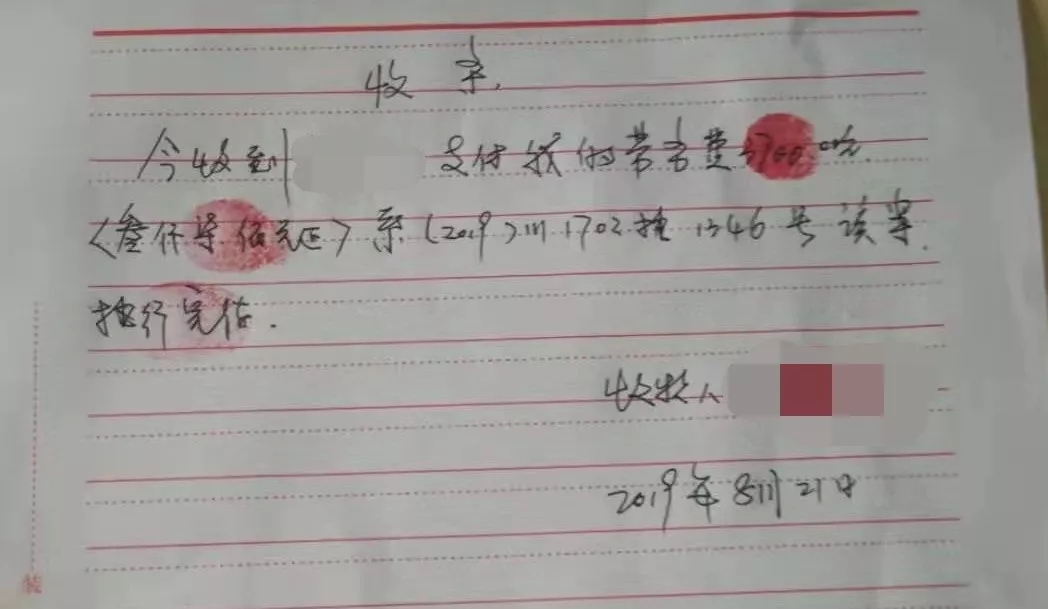 收条.
今收到 支付我的劳务费3700.00元.
(叁仟柒佰元正)系(2019)川1702执1346号该案
执行完结.
收款人
2019年8月21日
装